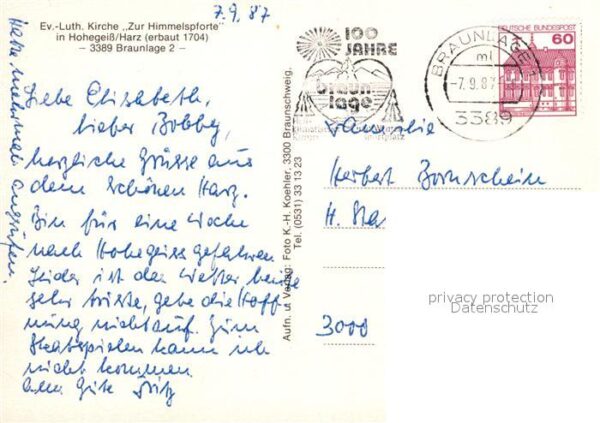 7.9.87
Ev.-Luth. Kirche „Zur Himmelspforte"
in Hohegeiß/Harz (erbaut 1704)
– 3389 Braunlage 2 –
Liebe Elisabeth,
lieber Bobby,
herzliche Grüsse aus
dem schönen Harz.
Bin für eine Woche
nach Hohegeiss gefahren
Leider ist das Wetter heute
sehr triste, gebe die Hoff
nung nicht auf. Zum
Skatspielen kann ich
nicht kommen.
Alles Gute Fritz
Habe mehrmals
angerufen.
Aufn. u. Verlag: Foto K.-H. Koehler, 3300 Braunschweig,
Tel. (0531) 33 13 23
100
JAHRE
braun
lage
BRAUNLAGE 1
ml
-7.9.87
3389
DEUTSCHE BUNDESPOST
60
Familie
Herbert Bornschein
H.
3000
privacy protection
Datenschutz